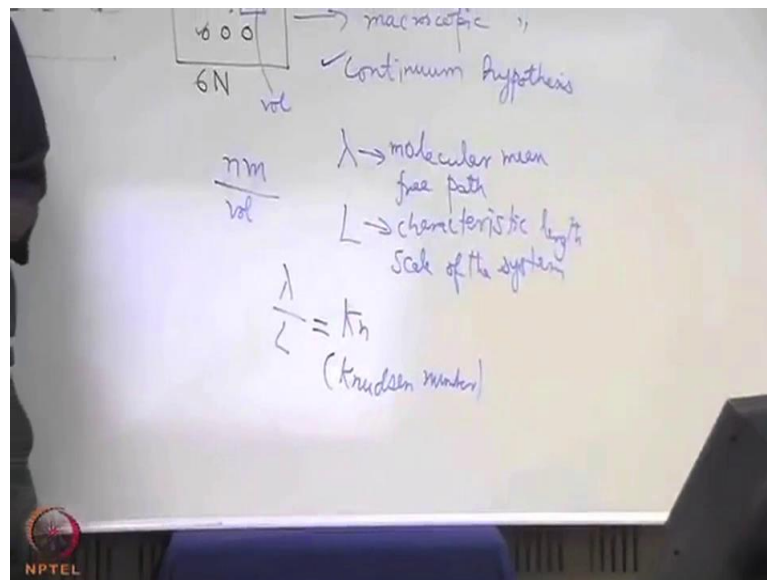 → macroscopic "
000
6N
vol
✓Continuum hypothesis
nm
vol
λ→molecular mean
free path
L→characteristic length
Scale of the system
λ
L
= Kn
(Knudsen number)
NPTEL